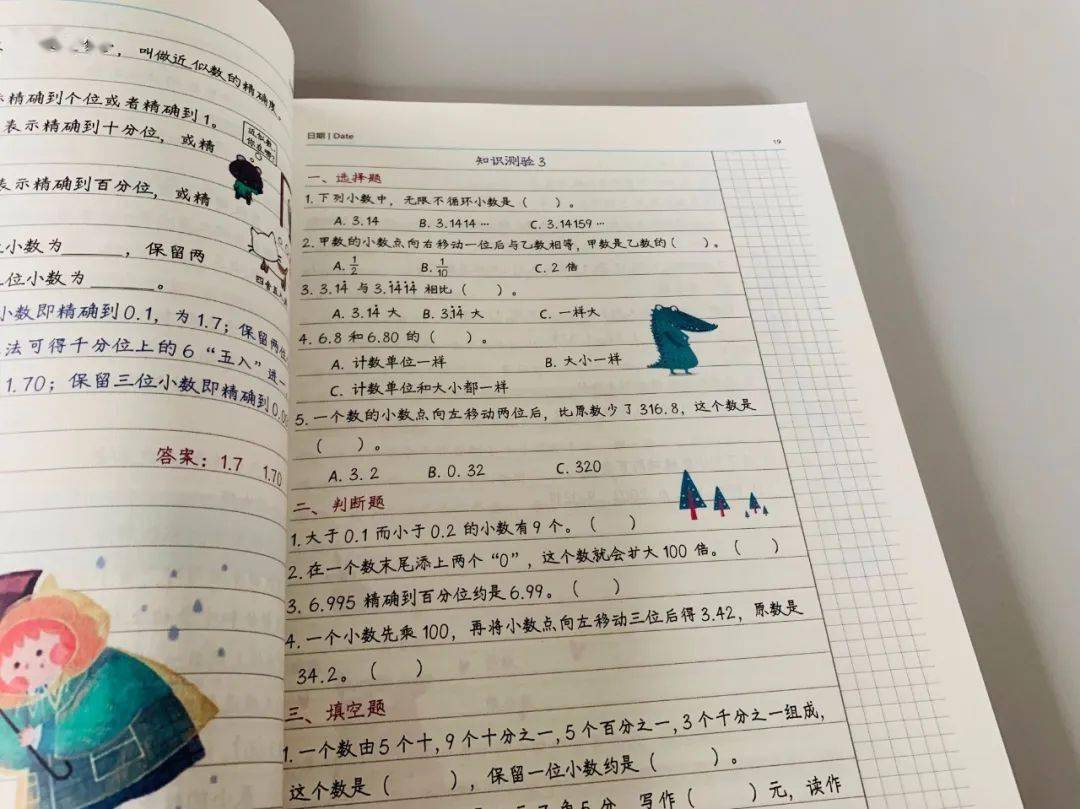 叫做近似数的精确度。
示精确到个位或者精确到1。
表示精确到十分位，或精
近似数
你在哪？
表示精确到百分位，或精
小数为______，保留两
位小数为______。
四舍五入
小数即精确到0.1，为1.7；保留两位
法可得千分位上的6“五入”进一
1.70；保留三位小数即精确到0.0
答案：1.7 1.70
日期 | Date
19
知识测验3
一、选择题
1.下列小数中，无限不循环小数是（ ）。
A. 3.14 B. 3.1414… C. 3.14159…
2.甲数的小数点向右移动一位后与乙数相等，甲数是乙数的（ ）。
A. 1/2 B. 1/10 C. 2倍
3. 3.14̇ 与 3.1̇41̇4̇ 相比（ ）。
A. 3.14̇ 大 B. 3.1̇4̇ 大 C. 一样大
4. 6.8和6.80的（ ）。
A. 计数单位一样 B. 大小一样
C. 计数单位和大小都一样
5. 一个数的小数点向左移动两位后，比原数少了316.8，这个数是
（ ）。
A. 3.2 B. 0.32 C. 320
二、判断题
1.大于0.1而小于0.2的小数有9个。（ ）
2.在一个数末尾添上两个“0”，这个数就会扩大100倍。（ ）
3. 6.995精确到百分位约是6.99。（ ）
4.一个小数先乘100，再将小数点向左移动三位后得3.42，原数是
34.2。（ ）
三、填空题
1.一个数由5个十，9个十分之一，5个百分之一，3个千分之一组成，
这个数是（ ），保留一位小数约是（ ）。
角5分，写作（ ）元，读作